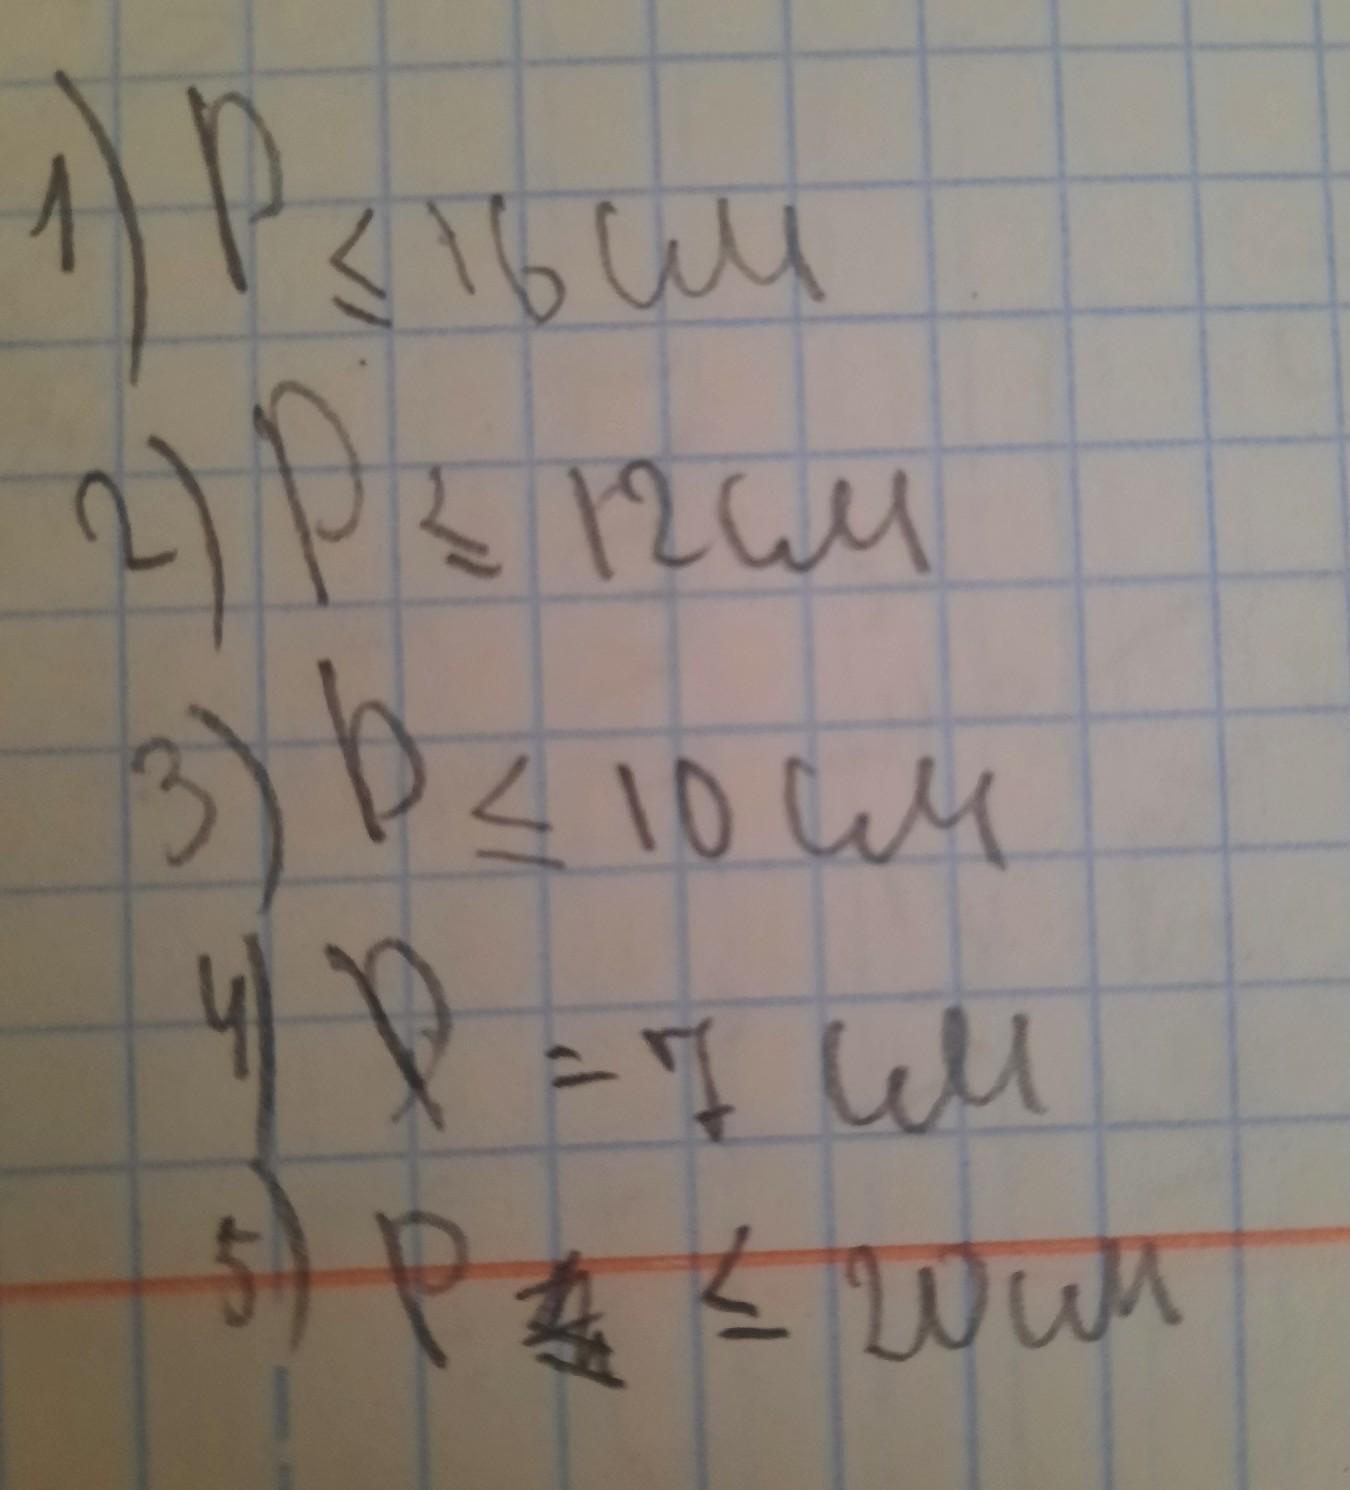 1) P ≤ 16 см
2) P ≤ 12 см
3) P ≤ 10 см
4) P = 7 см
5) P ≤ 20 см